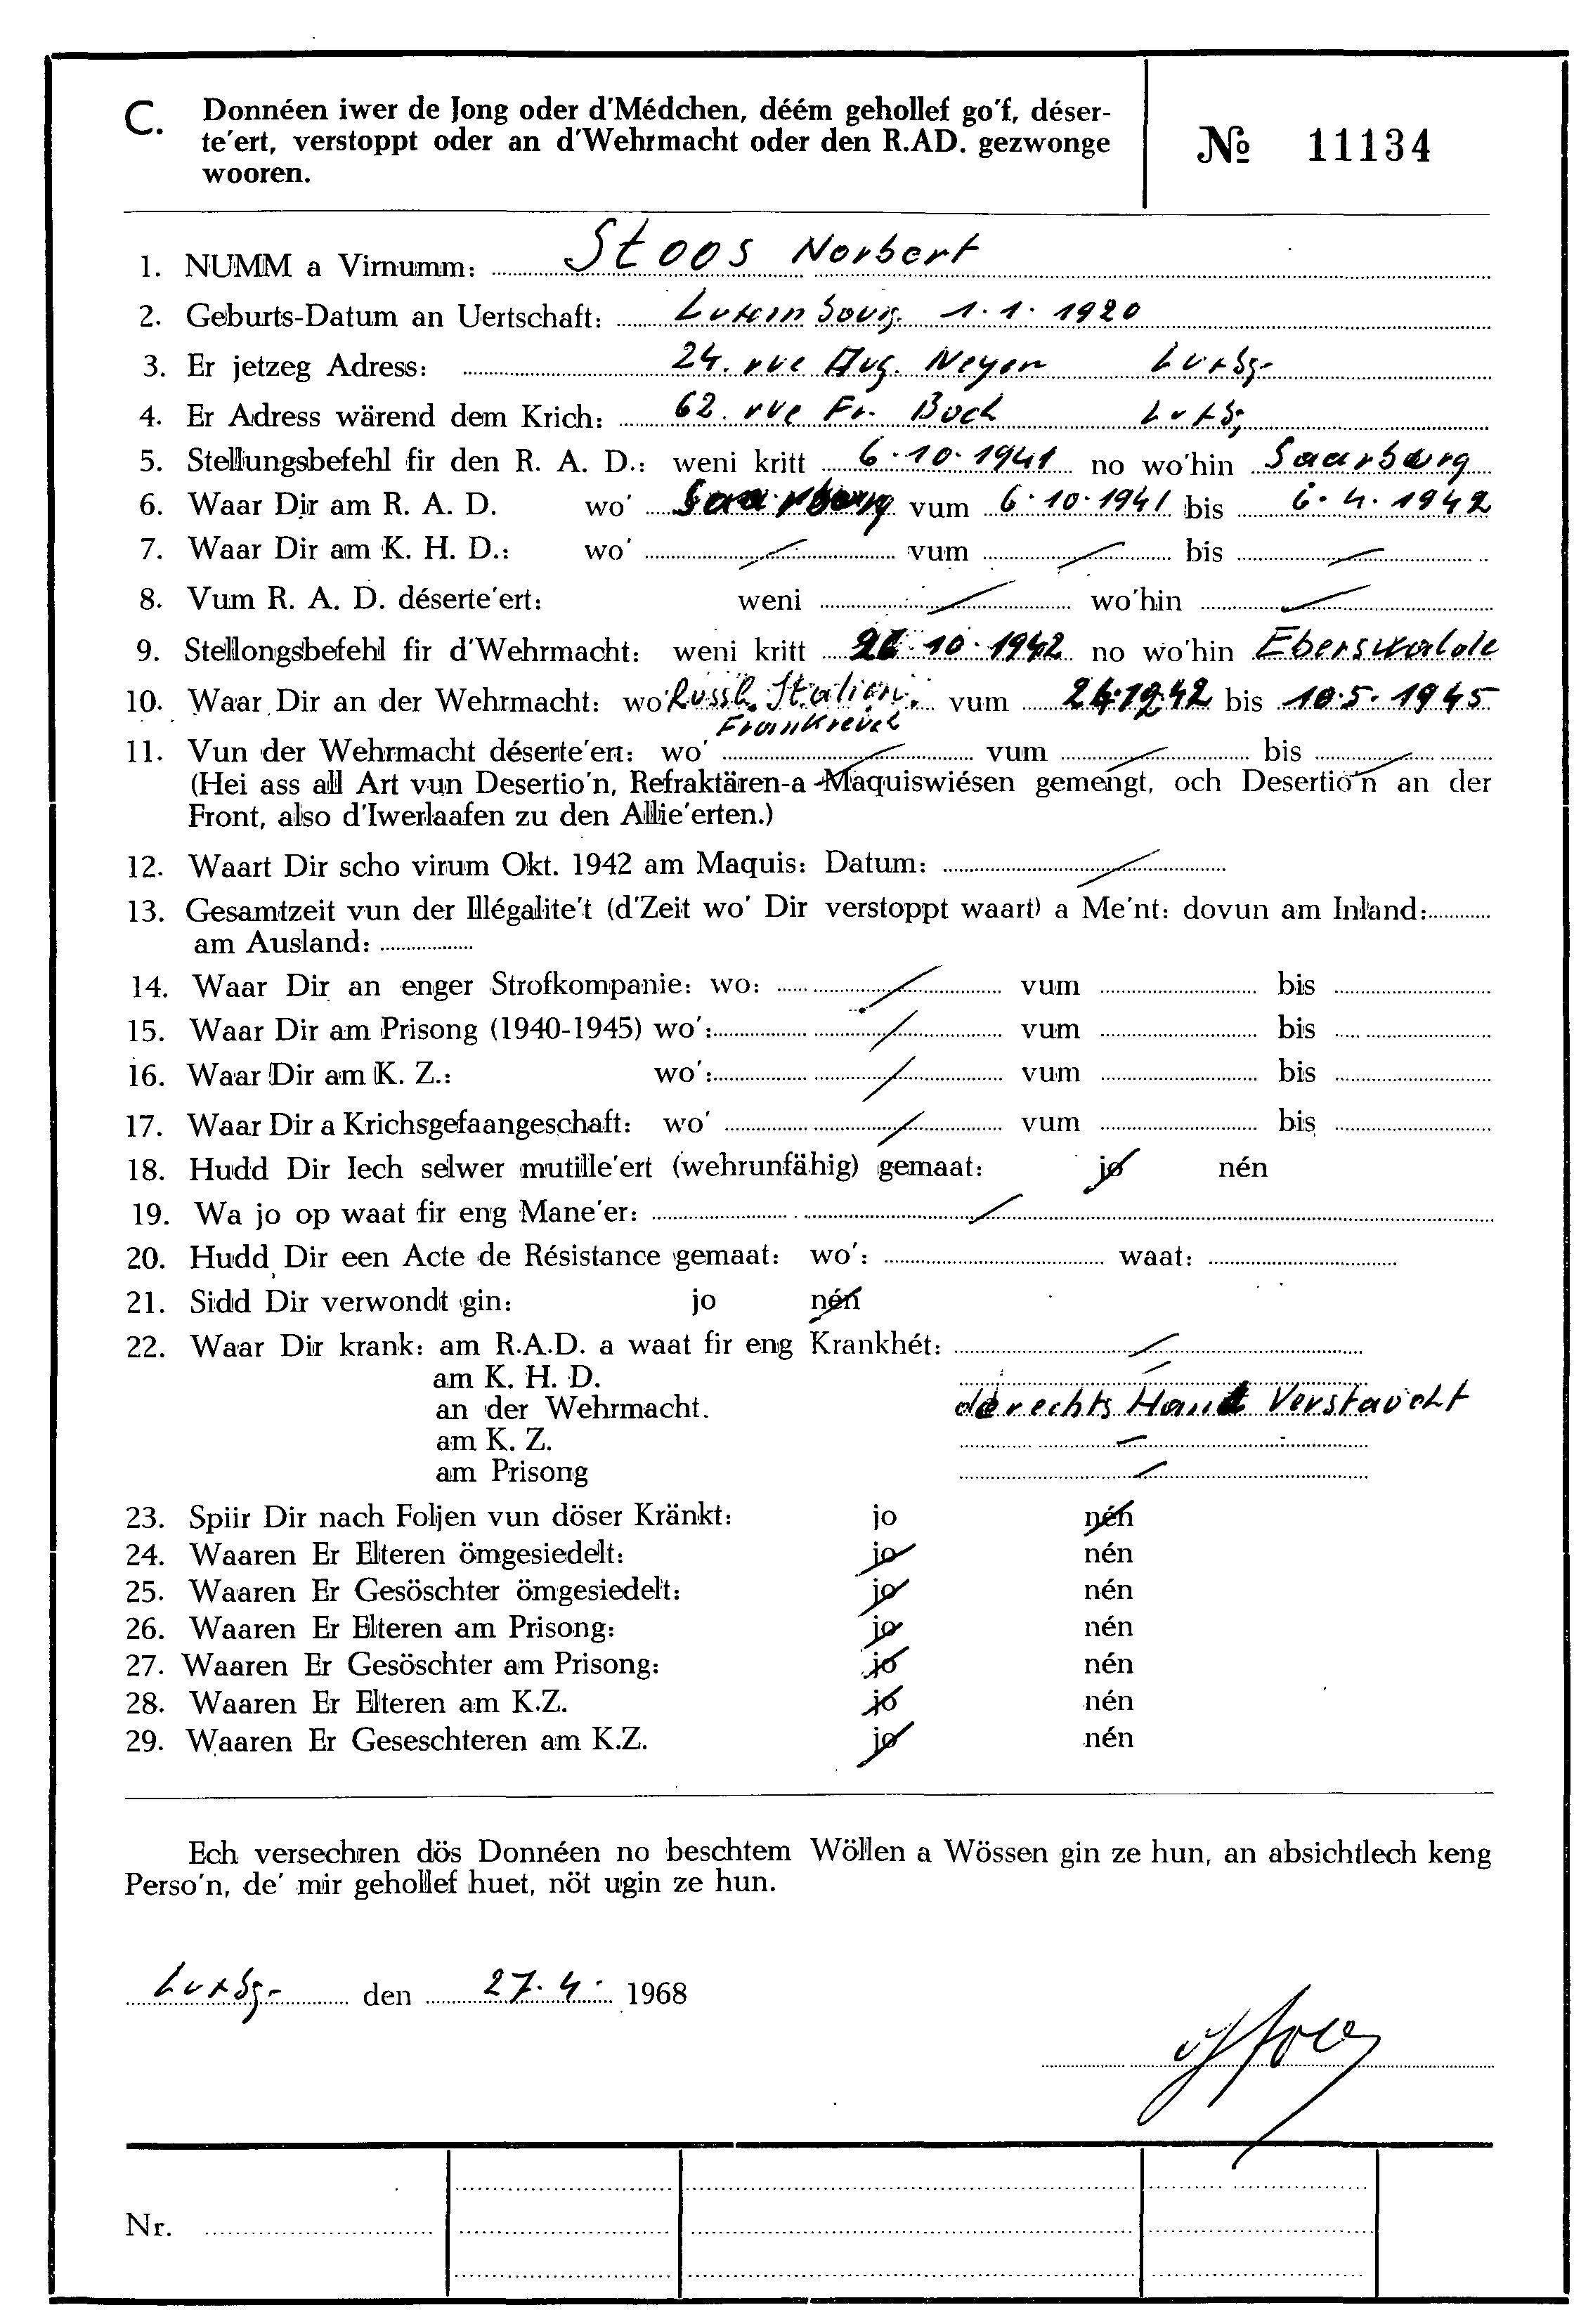 C. Donnéen iwer de Jong oder d'Médchen, déém gehollef go'f, déser-
te'ert, verstoppt oder an d'Wehrmacht oder den R.AD. gezwonge
wooren.
№ 11134
1. NUMM a Virnumm: Stoos Norbert
2. Geburts-Datum an Uertschaft: Luxembourg. 1.1.1920
3. Er jetzeg Adress: 24. rue Aug. Neyen Luxbg.
4. Er Adress wärend dem Krich: 62. rue Fr. Boch Luxbg
5. Stellungsbefehl fir den R. A. D.: weni kritt 6.10.1941 no wo'hin Saarburg
6. Waar Dir am R. A. D. wo' Saarburg vum 6.10.1941 bis 6.4.1942
7. Waar Dir am K. H. D.: wo' vum bis
8. Vum R. A. D. déserte'ert: weni wo'hin
9. Stellongsbefehl fir d'Wehrmacht: weni kritt 10.1942 no wo'hin Eberswalde
10. Waar Dir an der Wehrmacht: wo' Russl. Italien, vum bis 10.5.1945
Frankreich
11. Vun der Wehrmacht déserte'ert: wo' vum bis
(Hei ass all Art vun Desertio'n, Refraktären-a Maquiswiésen gemengt, och Desertio'n an der
Front, also d'Iwerlaafen zu den Allie'erten.)
12. Waart Dir scho virum Okt. 1942 am Maquis: Datum:
13. Gesamtzeit vun der Illégalite't (d'Zeit wo' Dir verstoppt waart) a Me'nt: dovun am Inland:
am Ausland:
14. Waar Dir an enger Strofkompanie: wo: vum bis
15. Waar Dir am Prisong (1940-1945) wo': vum bis
16. Waar Dir am K. Z.: wo': vum bis
17. Waar Dir a Krichsgefaangeschaft: wo' vum bis
18. Hudd Dir Iech selwer mutille'ert (wehrunfähig) gemaat: jo nén
19. Wa jo op waat fir eng Mane'er:
20. Hudd Dir een Acte de Résistance gemaat: wo': waat:
21. Sidd Dir verwondt gin: jo nén
22. Waar Dir krank: am R.A.D. a waat fir eng Krankhét:
am K. H. D.
an der Wehrmacht. rechts Hand Verstaucht
am K. Z.
am Prisong
23. Spiir Dir nach Foljen vun döser Kränkt: jo nén
24. Waaren Er Elteren ömgesiedelt: jo nén
25. Waaren Er Gesöschter ömgesiedelt: jo nén
26. Waaren Er Elteren am Prisong: jo nén
27. Waaren Er Gesöschter am Prisong: jo nén
28. Waaren Er Elteren am K.Z. jo nén
29. Waaren Er Geseschteren am K.Z. jo nén
Ech versechren dös Donnéen no beschtem Wöllen a Wössen gin ze hun, an absichtlech keng
Perso'n, de' mir gehollef huet, nöt ugin ze hun.
Luxbg. den 27.4. 1968
Nr.